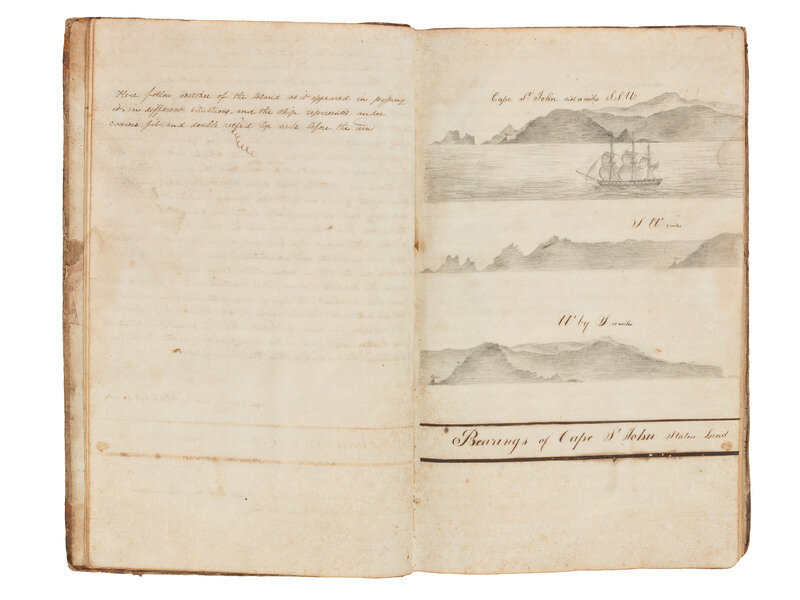 Here follow sketches of the Island as it appeared in passing
it, in different situations, and the ship represented under
courses, and double reefed Top sails, before the wind
Cape St. John dist miles S.S.W
S W miles
W by S miles
Bearings of Cape St John Staten Land